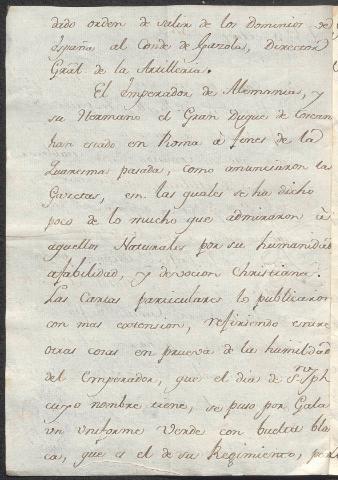 dado orden de salir de los Dominios de
españa al Conde de Gazola, Director
Gral de la Artilleria.
El emperador de Alemania, y
su Hermano el Gran Duque de Toscana
han estado en Roma à fines de la
Quaresma pasada, como anunciaron las
Gazetas, en las quales se ha dicho
poco de lo mucho que admiraron à
aquellos Naturales por su humanidad
afabilidad, y devocion Christiana.
Las Cartas particulares lo publicaron
con mas extension, refiriendo entre
otras cosas en prueva de la humildad
del Emperador, que el dia de Sn Jph
cuyo nombre tiene, se puso por Gala
un uniforme verde con buelta blan
ca, que es el de su Regimiento, per